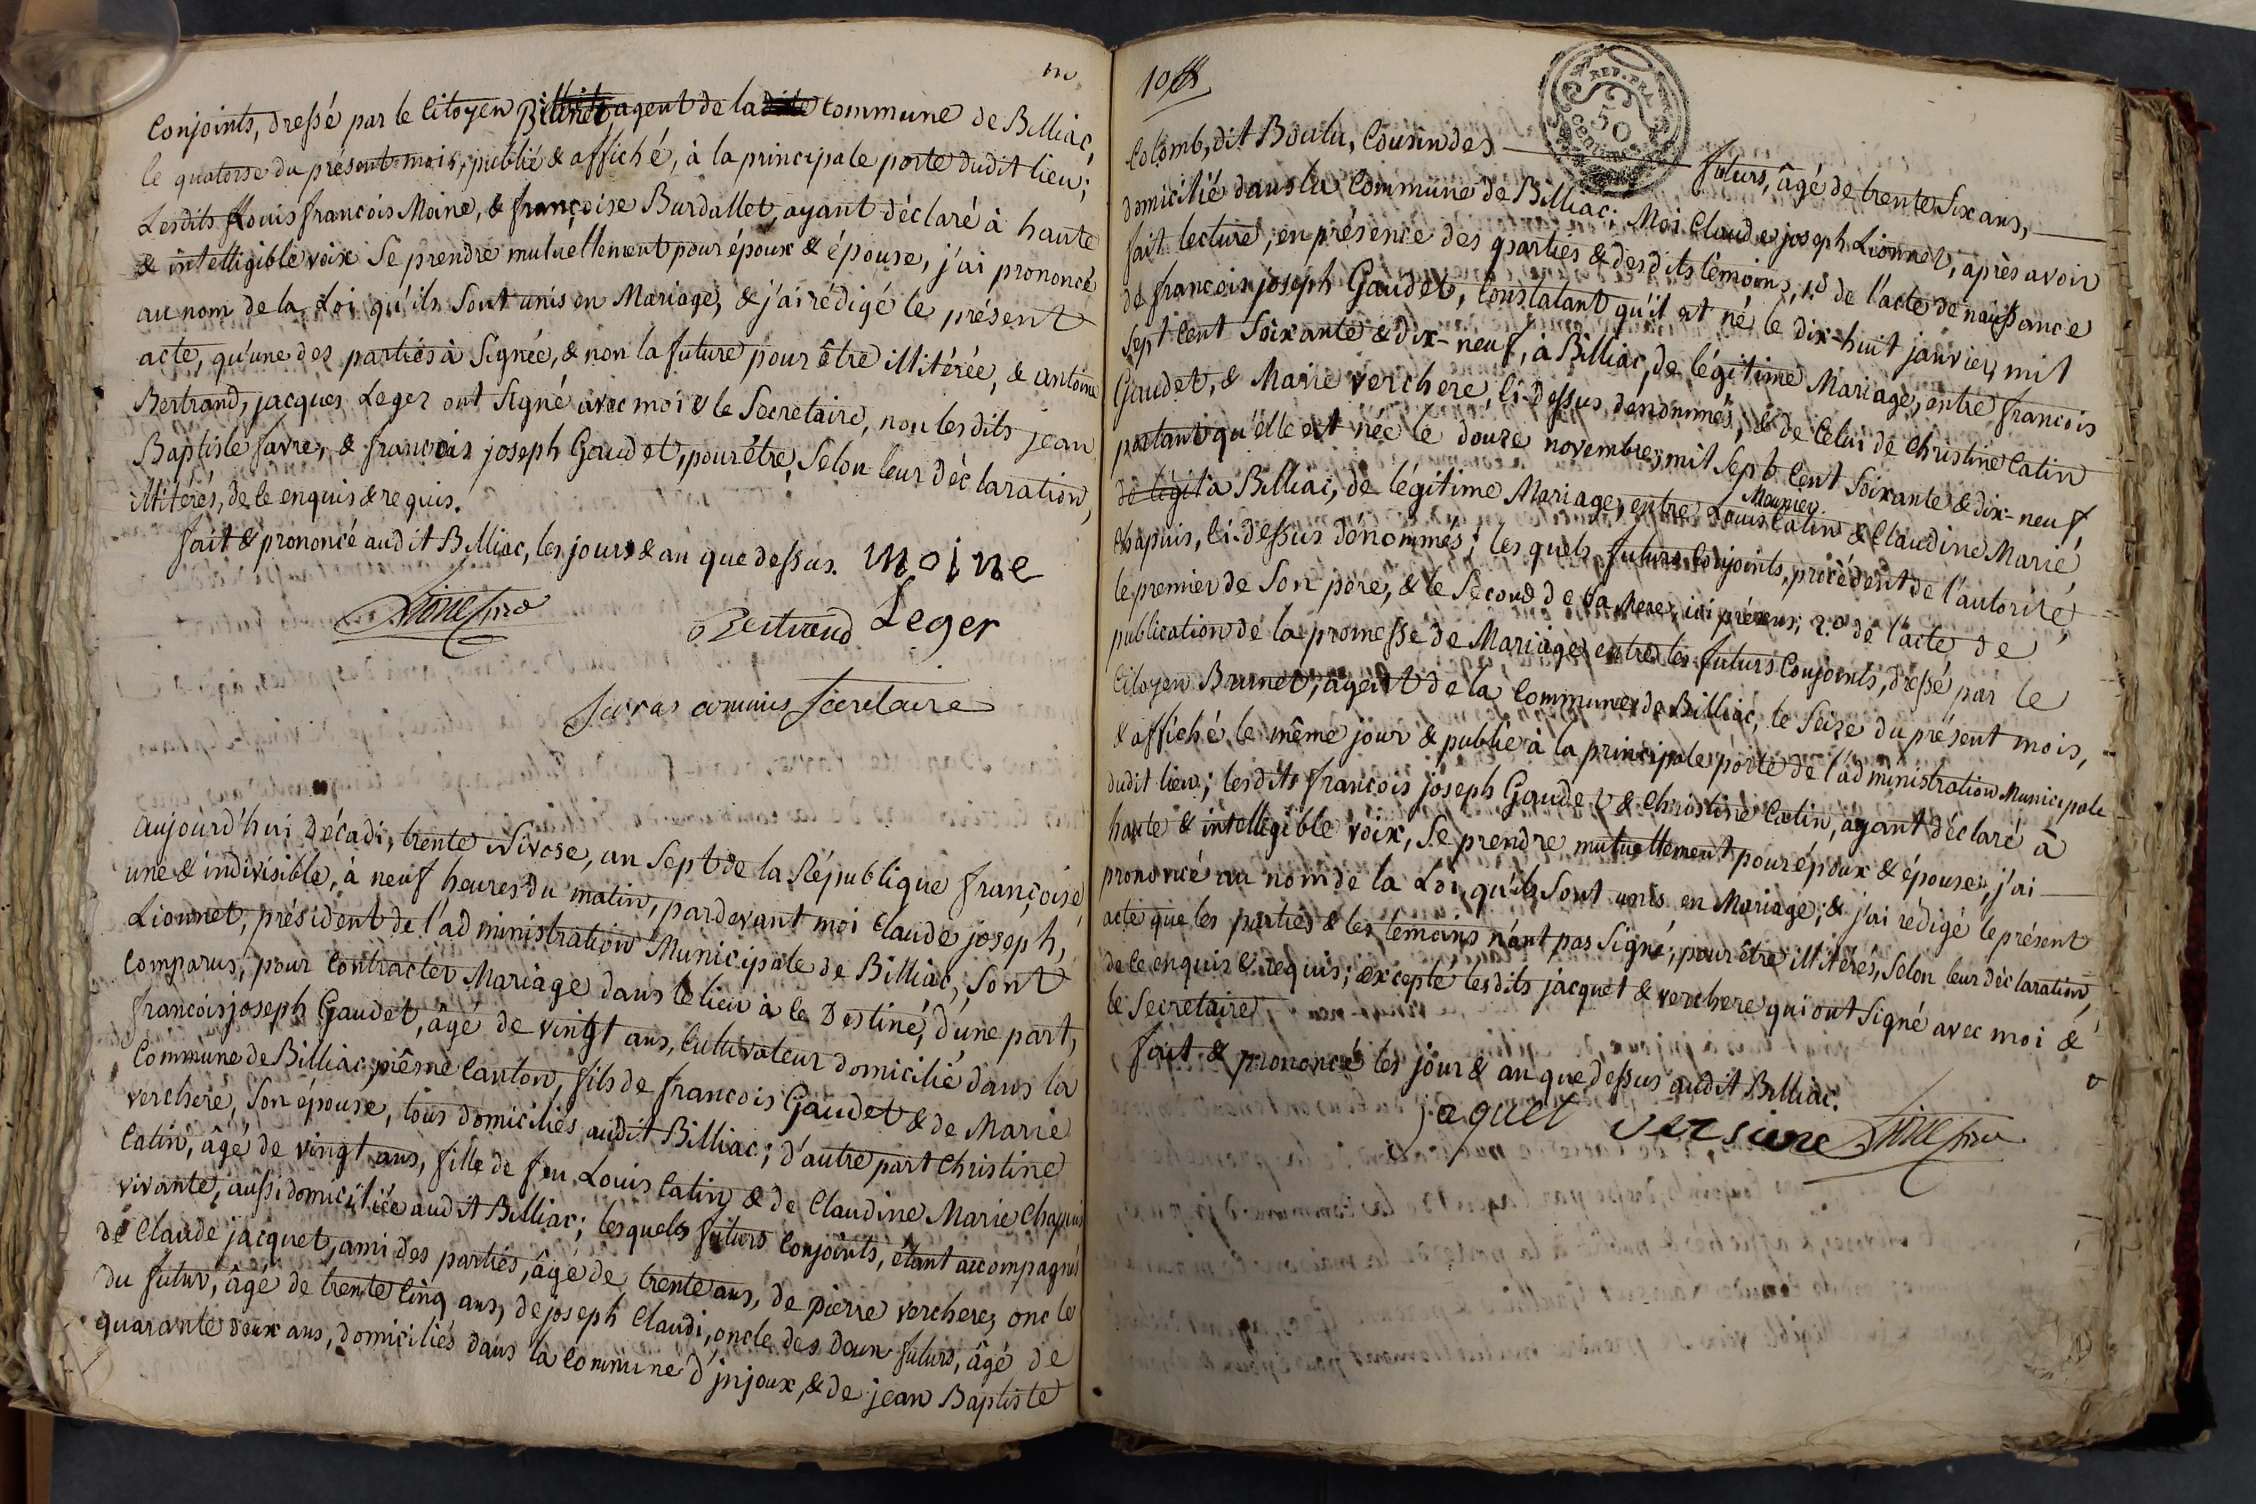 Conjoints, dressé par le Citoyen agent de la Commune de Billiac,
le quatorse du présent mois, publié & affiché, à la principale porte dudit lieu;
Lesdits Louis francois Moine, & françoise Burdallet, ayant déclaré à haute
& intelligible voix Se prendre mutuellement pour époux & épouse, j'ai prononcé
au nom de la Loi qu'ils Sont unis en Mariage, & j'ai rédigé le présent
acte, qu'une des parties à Signée, & non la future pour être illitérée, & antoine
Bertrand, jacques Leger ont Signé avec moi & le Secretaire, non lesdits jean
Baptiste favre, & francois joseph Gaudet, pour être, Selon leur déclaration,
illitérés, de ce enquis & requis.
fait & prononcé audit Billiac, les jours & an que dessus. moine
Bertrand Leger
commis Secretaire
Aujourd'hui Décadi, trente Nivose, an Sept de la République françoise,
une & indivisible, à neuf heures du matin, pardevant moi Claude joseph,
Lionnet, président de l'administration Municipale de Billiac, Sont
Comparus, pour Contracter Mariage dans le lieu à ce Destiné, d'une part,
francois joseph Gaudet, âgé de vingt ans, Cultivateur domicilié dans la
Commune de Billiac, même Canton, fils de francois Gaudet & de Marie
verchere, Son épouse, tous domiciliés audit Billiac; d'autre part Christine
Catin, âgé de vingt ans, fille de feu Louis Catin & de Claudine Marie Chapuis
vivante, aussi domiciliée audit Billiac; lesquels futurs Conjoints, étant accompagnés
de Claude jacquet, ami des parties, âgé de trente ans, de pierre verchere, oncle
du futur, âgé de trente Cinq ans, de joseph Claudi, oncle des deux futurs, âgé de
quarante deux ans, domiciliés dans la Commune d'jnjoux, & de jean Baptiste
10
REP. FRA.
50
Centimes
Colomb, dit Boulu, Cousin des futurs, âgé de trente Six ans,
domicilié dans la Commune de Billiac; Moi Claude joseph Lionnet, après avoir
fait lecture, en présence des parties & desdits témoins, 1.º de l'acte de naissance
de francois joseph Gaudet, Constatant qu'il est né le dix-huit janvier, mil
Sept Cent Soixante & dix-neuf, à Billiac, de légitime Mariage, entre francois
Gaudet, & Marie verchere, Ci-dessus dénommés, & de Celui de Christine Catin
portant qu'elle est née le douze novembre, mil Sept Cent Soixante & dix-neuf,
de légit a Billiac, de légitime Mariage, entre Louis Catin & Claudine Marie
Meunier
Chapuis, Ci-dessus dénommés; lesquels futurs Conjoints, procèdent de l'autorité,
le premier de Son père, & le Second de Sa Mere, ici présens; 2.º de l'acte de
publication de la promesse de Mariage entre les futurs Conjoints, dressé par le
Citoyen Brunet, agent de la Commune de Billiac, le Seize du présent mois,
& affiché le même jour & publié à la principale porte de l'administration Municipale
dudit lieu; lesdits francois joseph Gaudet & Christine Catin, ayant déclaré à
haute & intelligible voix, Se prendre mutuellement pour époux & épouse, j'ai
prononcé au nom de la Loi, qu'ils Sont unis en Mariage, & j'ai rédigé le présent
acte que les parties & les temoins n'ont pas Signé, pour être illitérés, Selon leur déclaration,
de ce enquis & requis; excepté lesdits jacquet & verchere qui ont Signé avec moi &
le Secretaire.
fait & prononcé les jour & an que dessus audit Billiac.
jaquet